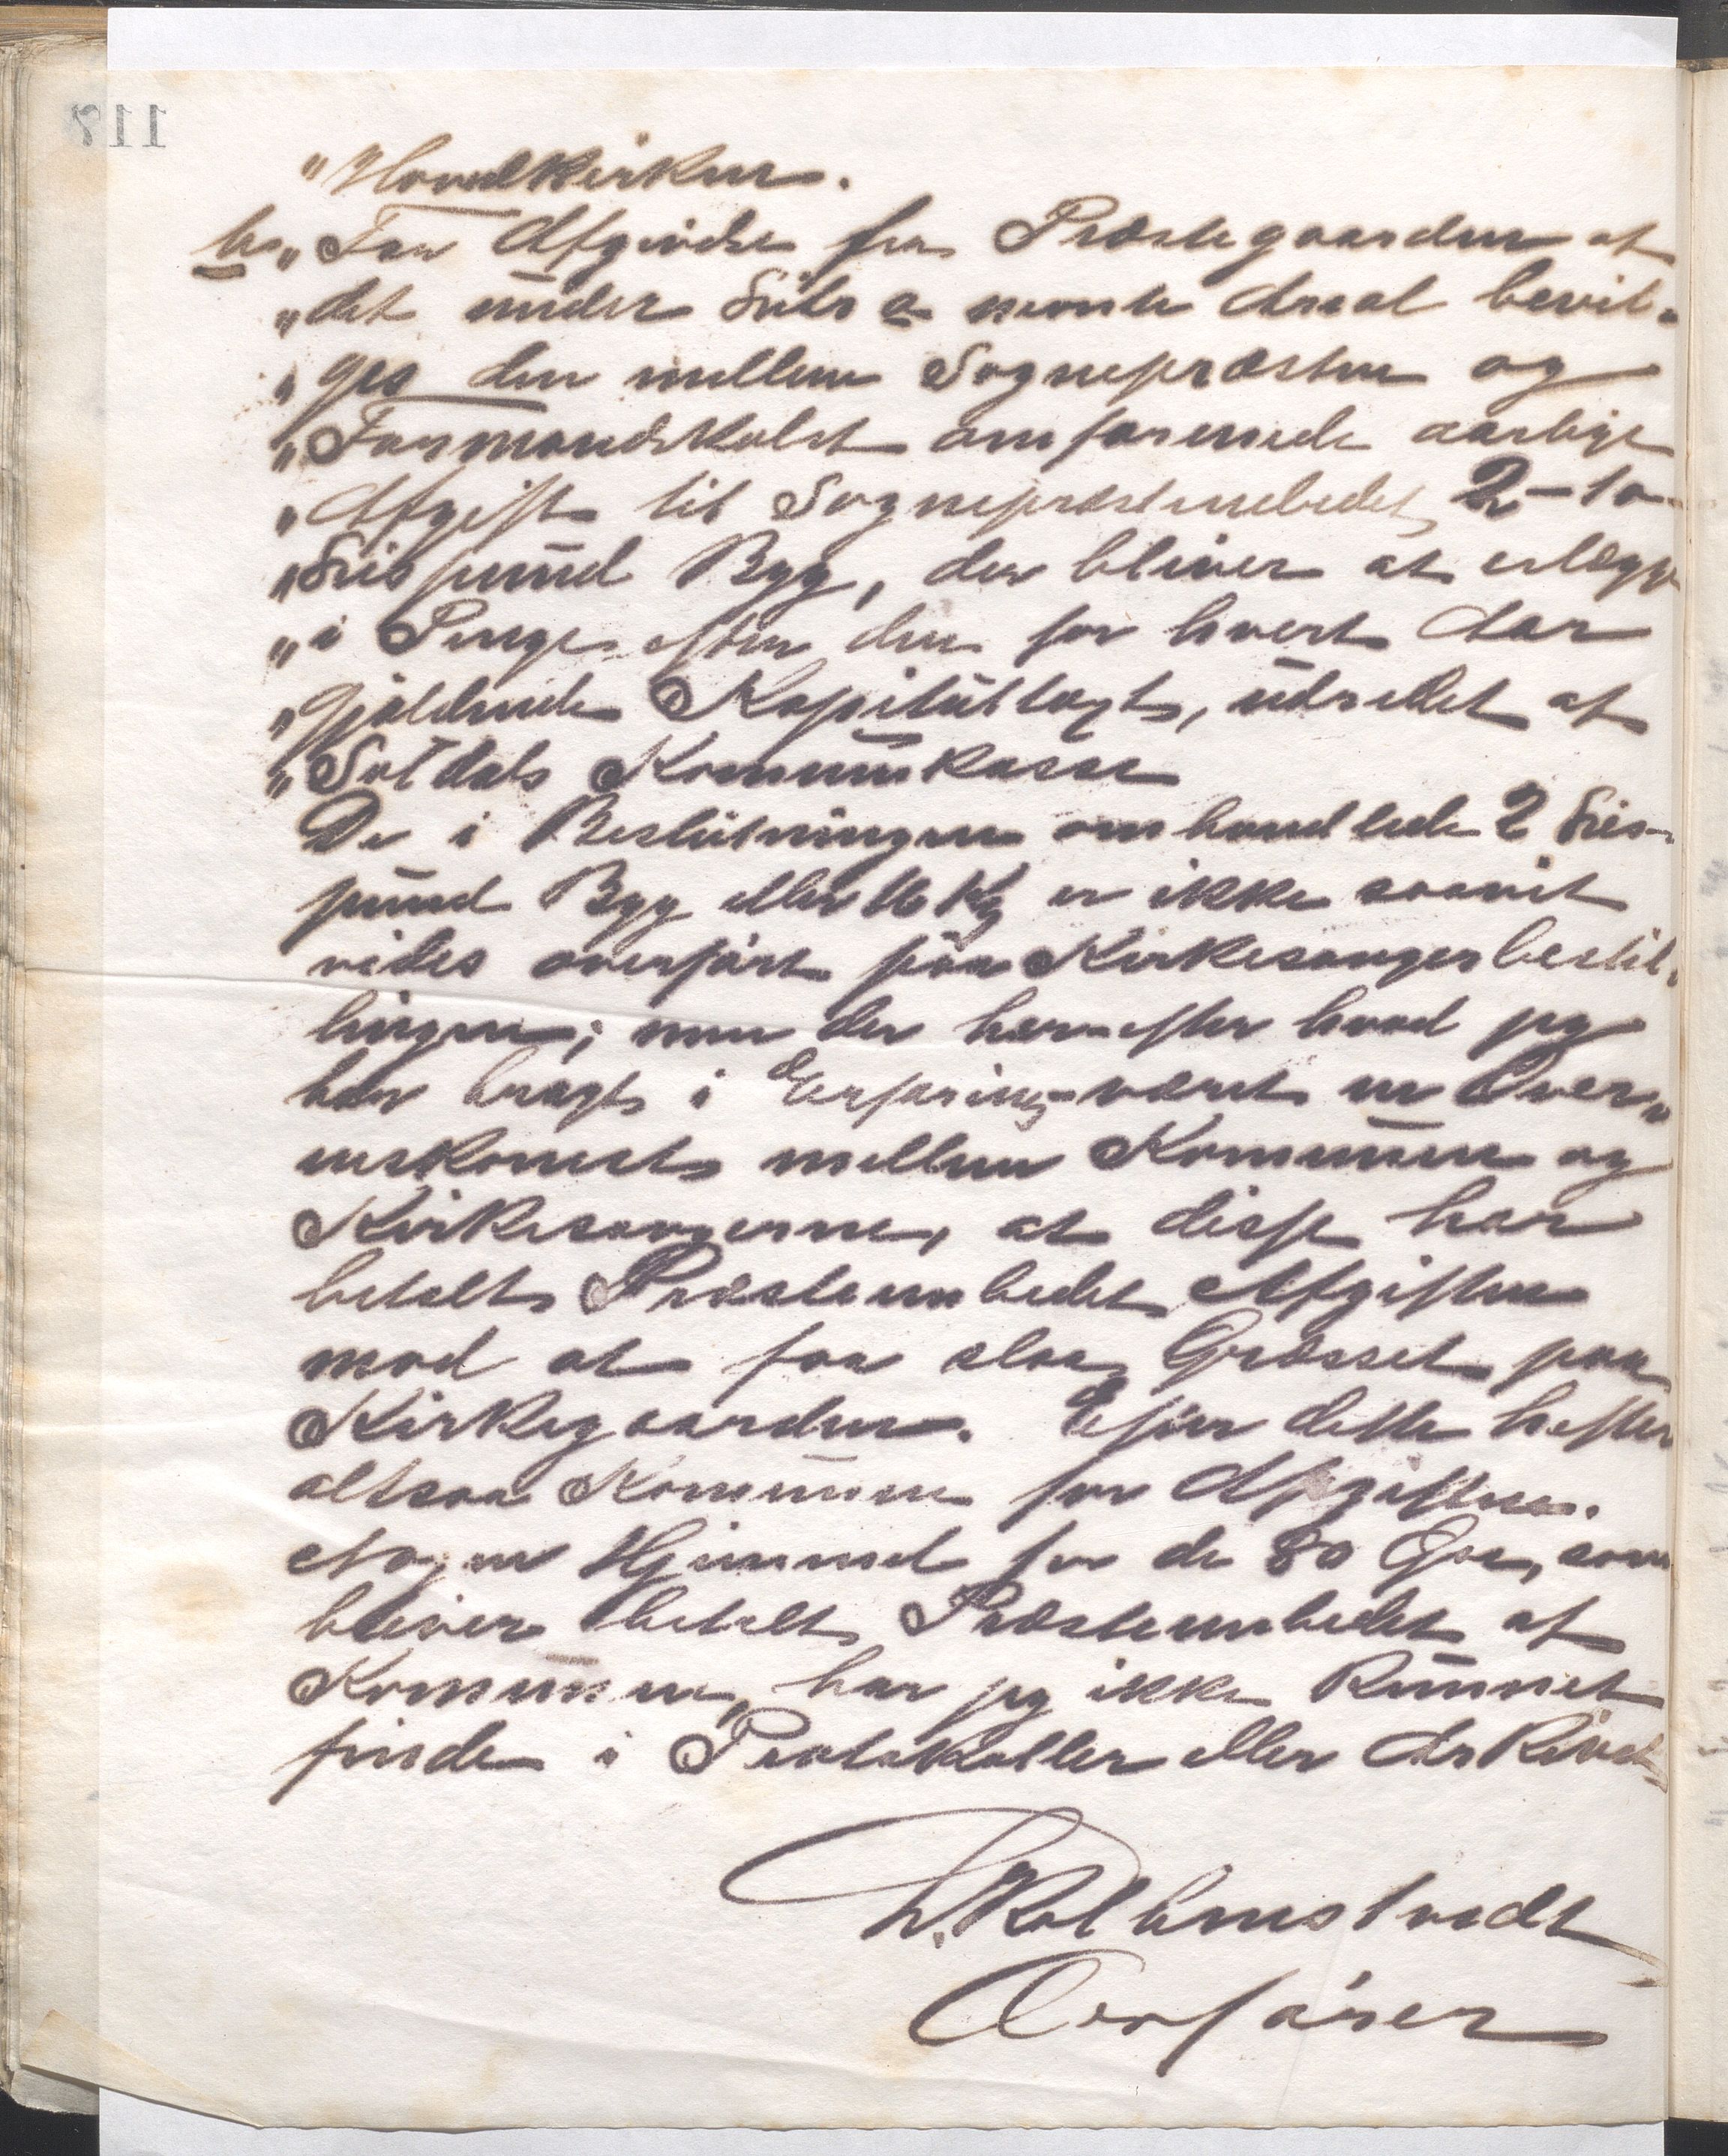 117
"Hovedkirken.
b. "For Afgivelse fra Præstegaarden af
"det under Litr a nevnte Areal bevil-
"ges den mellem Sognepræsten og
"Formandskabet omforenede aarlige
"Afgift til Sognepræsteembedet, 2 - to -
"Lispund Byg, der bliver at erlægge
"i Penge efter den for hvert Aar
"gjældende Kapitultaxt, udredet af
"Sotdals Kommunekasse
De i Beslutningen omhandlede 2 Lis-
pund Byg eller 16 Kg er ikke saavit
vides overført paa Kirkesangerbestil-
lingen; men der har efter hvad jeg
har bragt i Erfaring været en Over-
enskomst mellem Kommunen og
Kirkesangerne, at disse har
betalt Præsteembedet Afgiften
mod at faa slaa Græsset paa
Kirkegaarden. Efter dette hefter
altsaa Kommunen for Afgiften.
Nogen Hjemmel for de 80 Øre, som
bliver betalt Præsteembedet af
Kommunen, har jeg ikke kunnet
finde i Protokoller eller Arkivet,
Ordfører